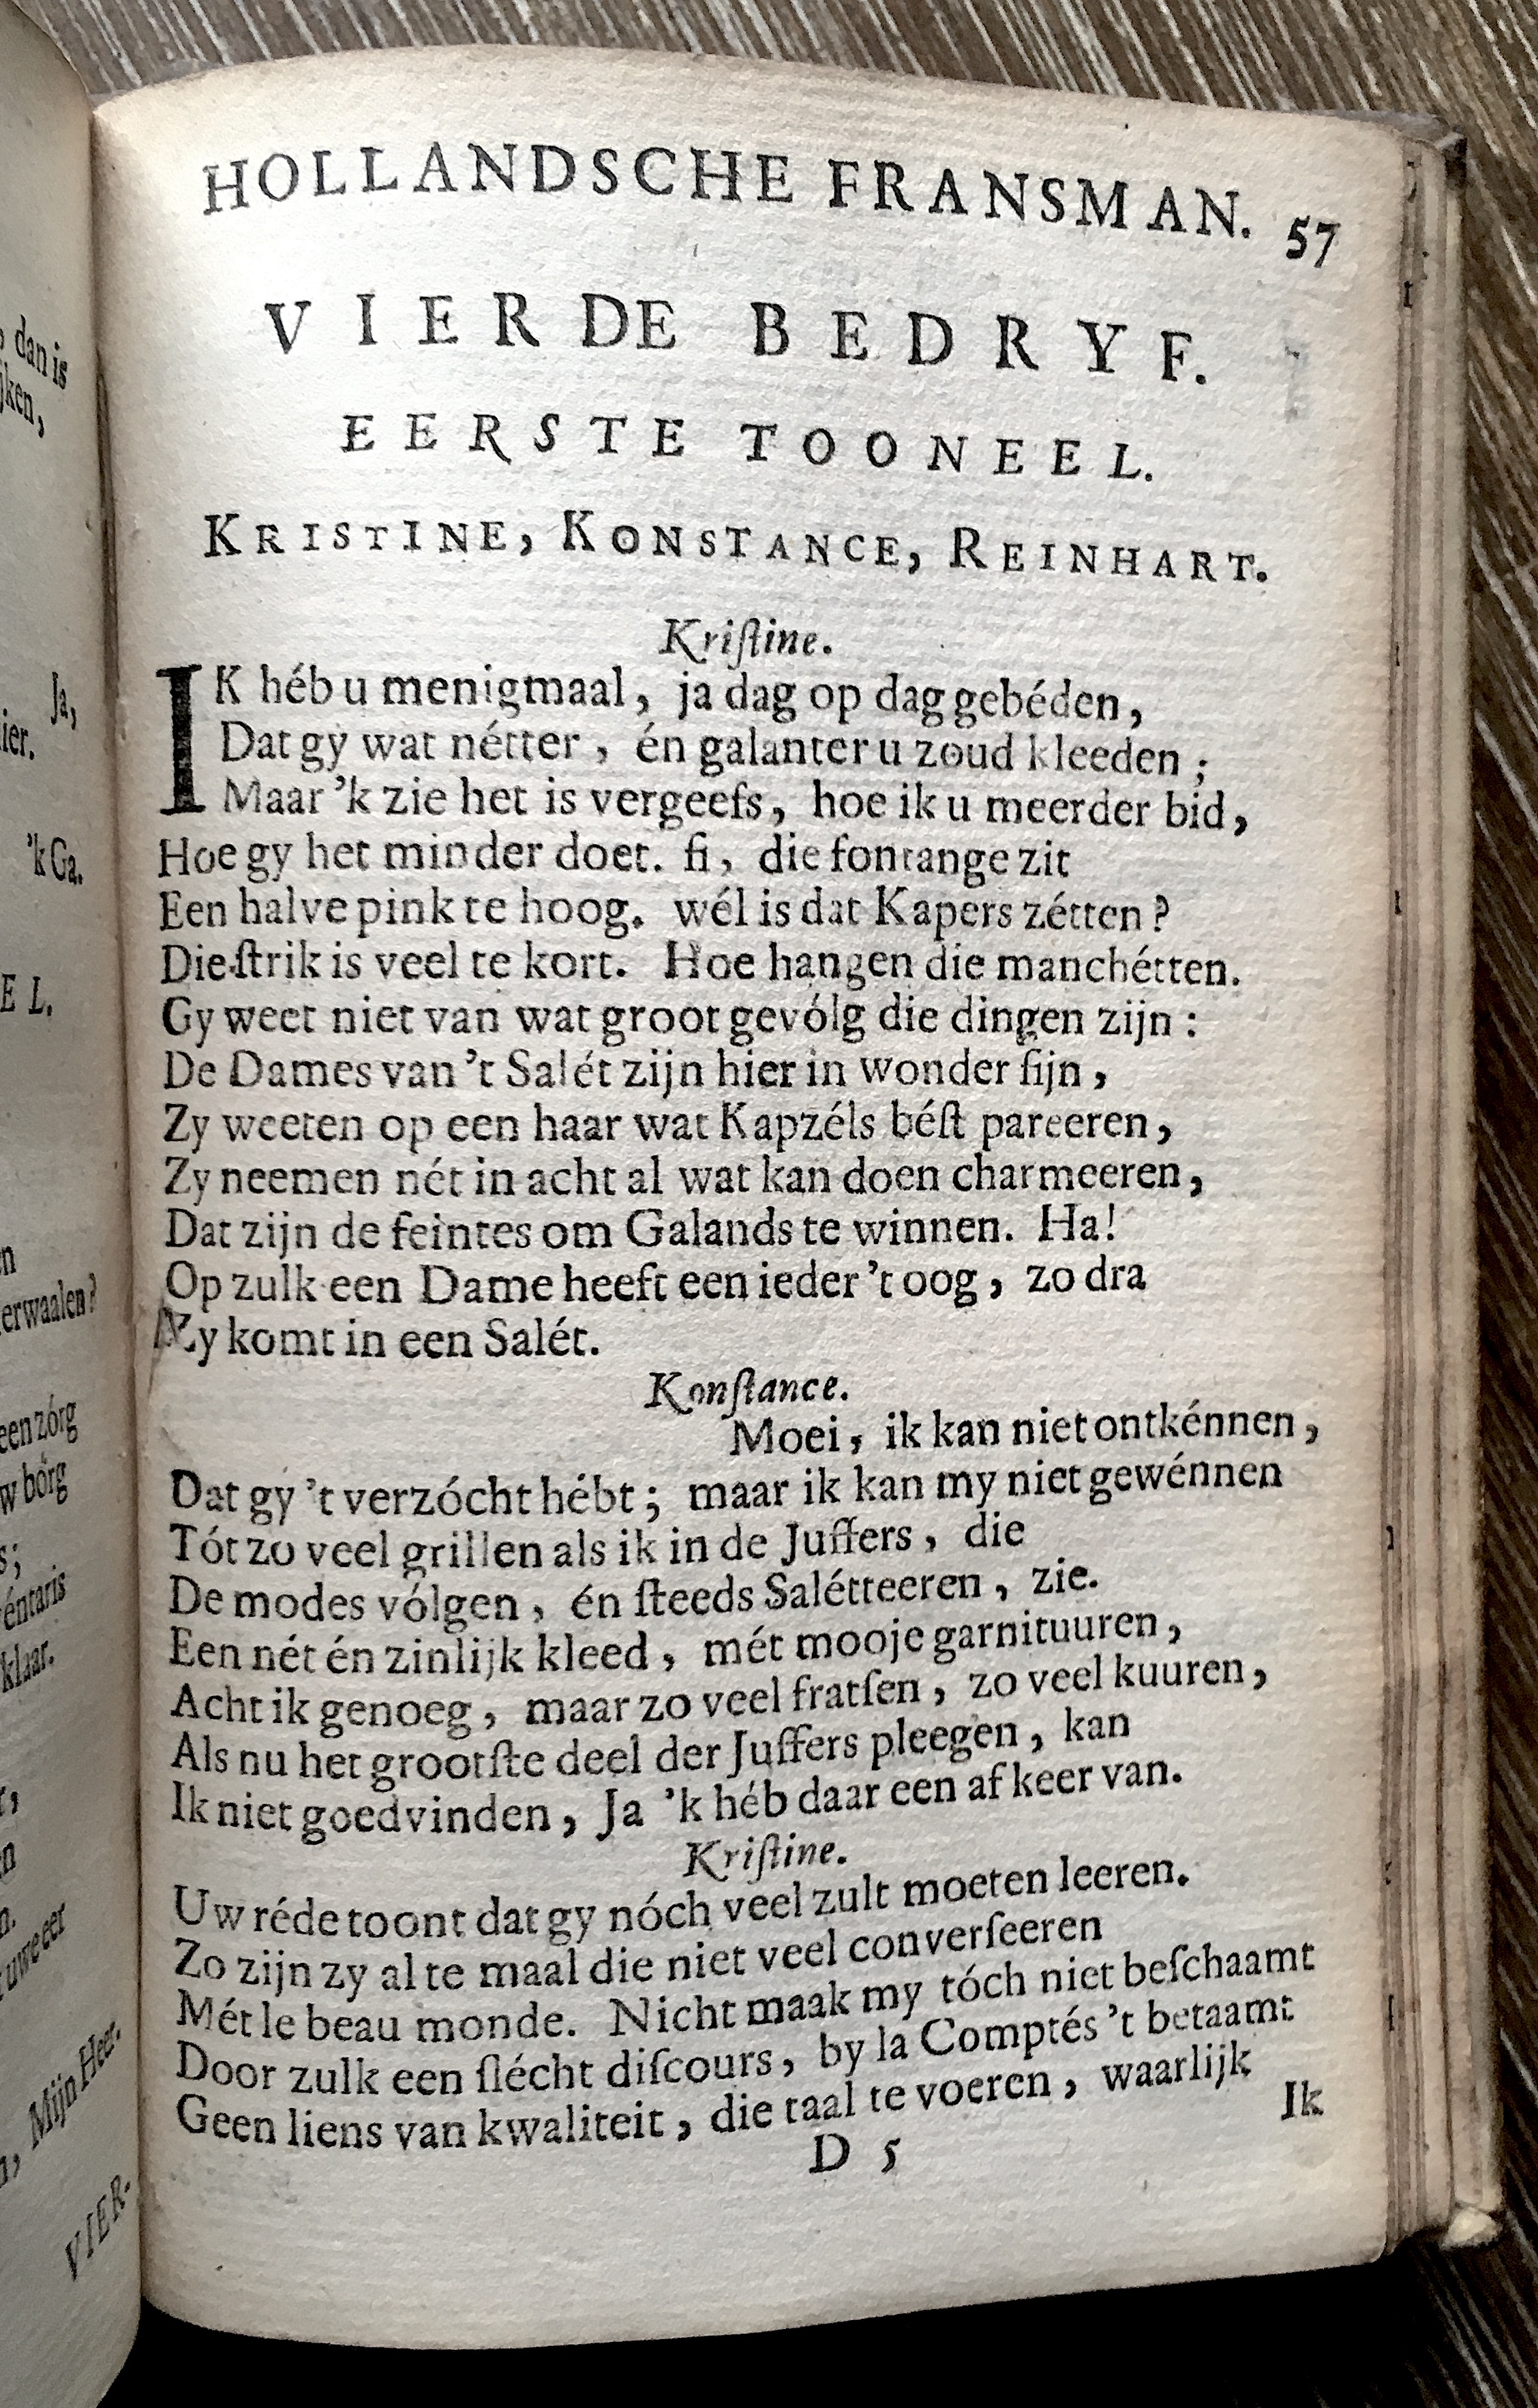 dan is
jken,
Ja,
ier.
'k Ga.
E L.
n
erwaalen?
een zórg
w bórg
s;
éntaris
klaar.
uwe eer
Mijn Heer.
VIER-
HOLLANDSCHE FRANSMAN. 57
VIERDE BEDRYF.
EERSTE TOONEEL.
KRISTINE, KONSTANCE, REINHART.
Kriſtine.
IK héb u menigmaal, ja dag op dag gebéden,
Dat gy wat nétter, én galanter u zoud kleeden;
Maar 'k zie het is vergeefs, hoe ik u meerder bid,
Hoe gy het minder doet. fi, die fontange zit
Een halve pink te hoog. wél is dat Kapers zétten?
Die ſtrik is veel te kort. Hoe hangen die manchétten.
Gy weet niet van wat groot gevólg die dingen zijn:
De Dames van 't Salét zijn hier in wonder fijn,
Zy weeten op een haar wat Kapzéls béſt pareeren,
Zy neemen nét in acht al wat kan doen charmeeren,
Dat zijn de feintes om Galands te winnen. Ha!
Op zulk een Dame heeft een ieder 't oog, zo dra
Zy komt in een Salét.
Konſtance.
Moei, ik kan niet ontkénnen,
Dat gy 't verzócht hébt; maar ik kan my niet gewénnen
Tót zo veel grillen als ik in de Juffers, die
De modes vólgen, én ſteeds Salétteeren, zie.
Een nét én zinlijk kleed, mét mooje garnituuren,
Acht ik genoeg, maar zo veel fratſen, zo veel kuuren,
Als nu het grootſte deel der Juffers pleegen, kan
Ik niet goedvinden, Ja 'k héb daar een afkeer van.
Kriſtine.
Uw réde toont dat gy nóch veel zult moeten leeren.
Zo zijn zy al te maal die niet veel converſeeren
Mét le beau monde. Nicht maak my tóch niet beſchaamt
Door zulk een ſlécht diſcours, by la Comptés 't betaamt
Geen liens van kwaliteit, die taal te voeren, waarlijk
D 5
Ik